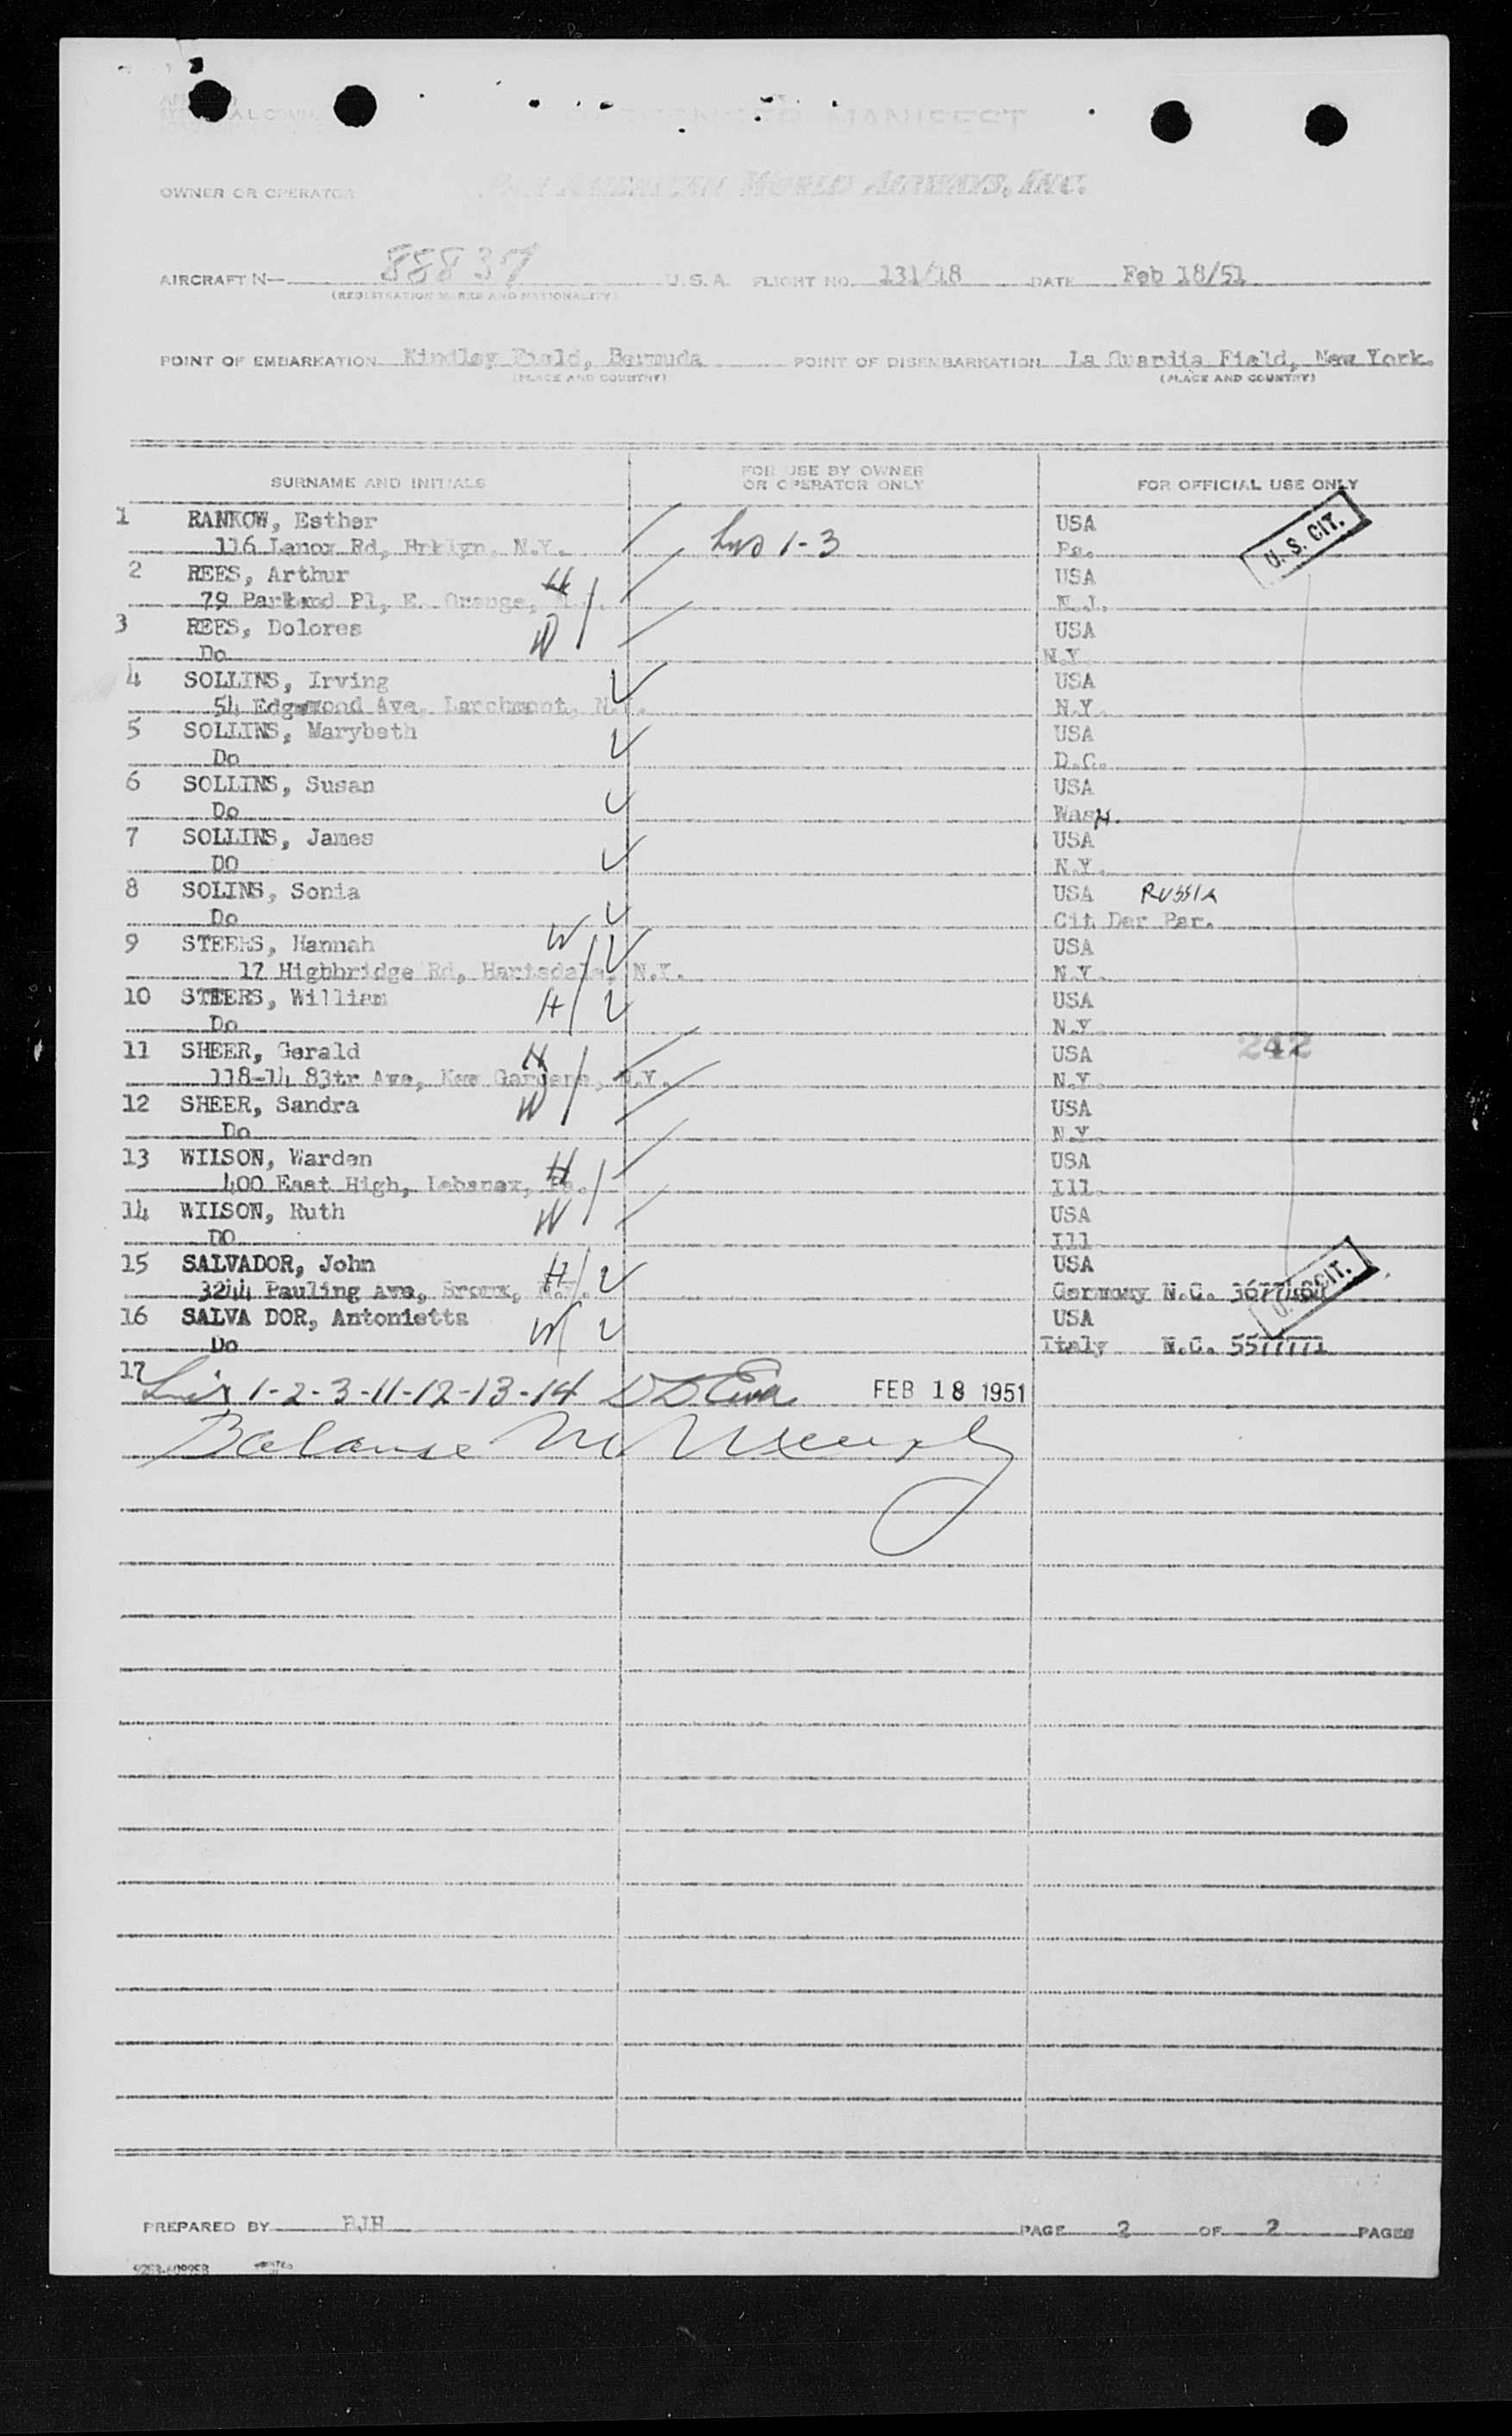 MANIFEST
OWNER OR OPERATOR PAN AMERICAN WORLD AIRWAYS, INC.
AIRCRAFT N— 88837 U.S.A. FLIGHT NO. 131/18 DATE Feb 18/51
(REGISTRATION MARKS AND NATIONALITY)
POINT OF EMBARKATION Kindley Field, Bermuda POINT OF DISEMBARKATION La Guardia Field, New York.
(PLACE AND COUNTRY) (PLACE AND COUNTRY)
SURNAME AND INITIALS FOR USE BY OWNER OR OPERATOR ONLY FOR OFFICIAL USE ONLY
1 RANKOW, Esther USA U. S. CIT.
116 Lenox Rd, Brklyn, N.Y. 1-3 Pa.
2 REES, Arthur H USA
79 Pl, E. Orange, N.J.
3 REES, Dolores W USA
Do N.Y.
4 SOLLINS, Irving USA
54 Ave, Larchmont, N.Y. N.Y.
5 SOLLINS, Marybeth USA
Do D.C.
6 SOLLINS, Susan USA
Do Wash.
7 SOLLINS, James USA
DO N.Y.
8 SOLINS, Sonia USA RUSSIA
Do Cit Der Par.
9 STEERS, Hannah W USA
17 Highbridge Rd, Hartsdale, N.Y. N.Y.
10 STEERS, William H USA
Do N.Y.
11 SHEER, Gerald H USA 242
118-14 83tr Ave, Kew Gardens, N.Y. N.Y.
12 SHEER, Sandra W USA
Do N.Y.
13 WILSON, Warden H USA
400 East High, Pa. Ill.
14 WILSON, Ruth W USA
DO Ill
15 SALVADOR, John H USA
3244 Pauling Ave, Bronx, N.Y. Germany N.C. U. S. CIT.
16 SALVA DOR, Antonietta W USA
Do Italy N.C. 5577771
17 1-2-3-11-12-13-14 FEB 18 1951
Balance
PREPARED BY PAGE 2 OF 2 PAGES